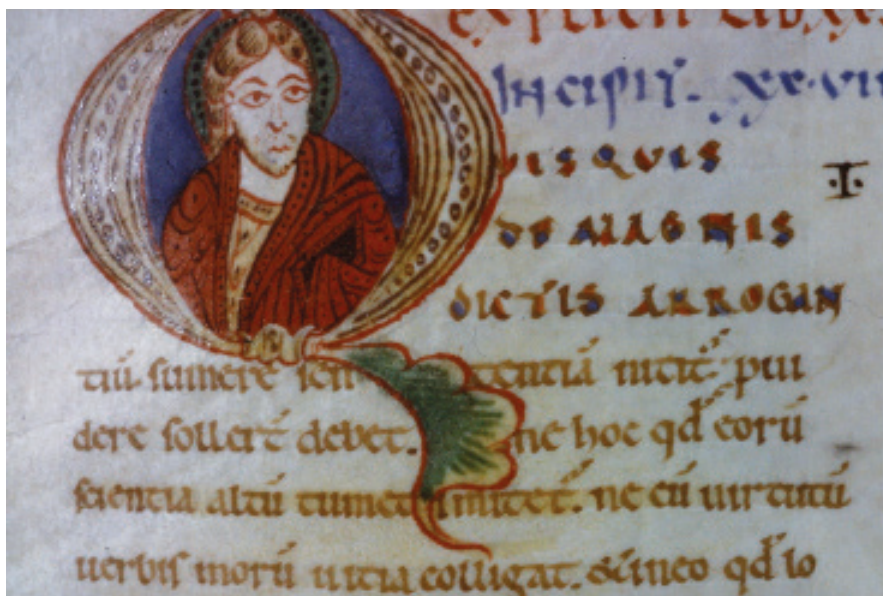 explicit lib xx
Incipit. xxvii
QUISQUIS
DE MAGNIS
DICTIS ARROGAN
.I.
tiū sumere sententiā nitit᷑ p̱ui
dere sollert̄ debet. ne hoc qd̄ eorū
scientia altū tumet imitet᷑. ne cū uirtutū
uerbis morū uitia colligat. & in eo qd̄ lo